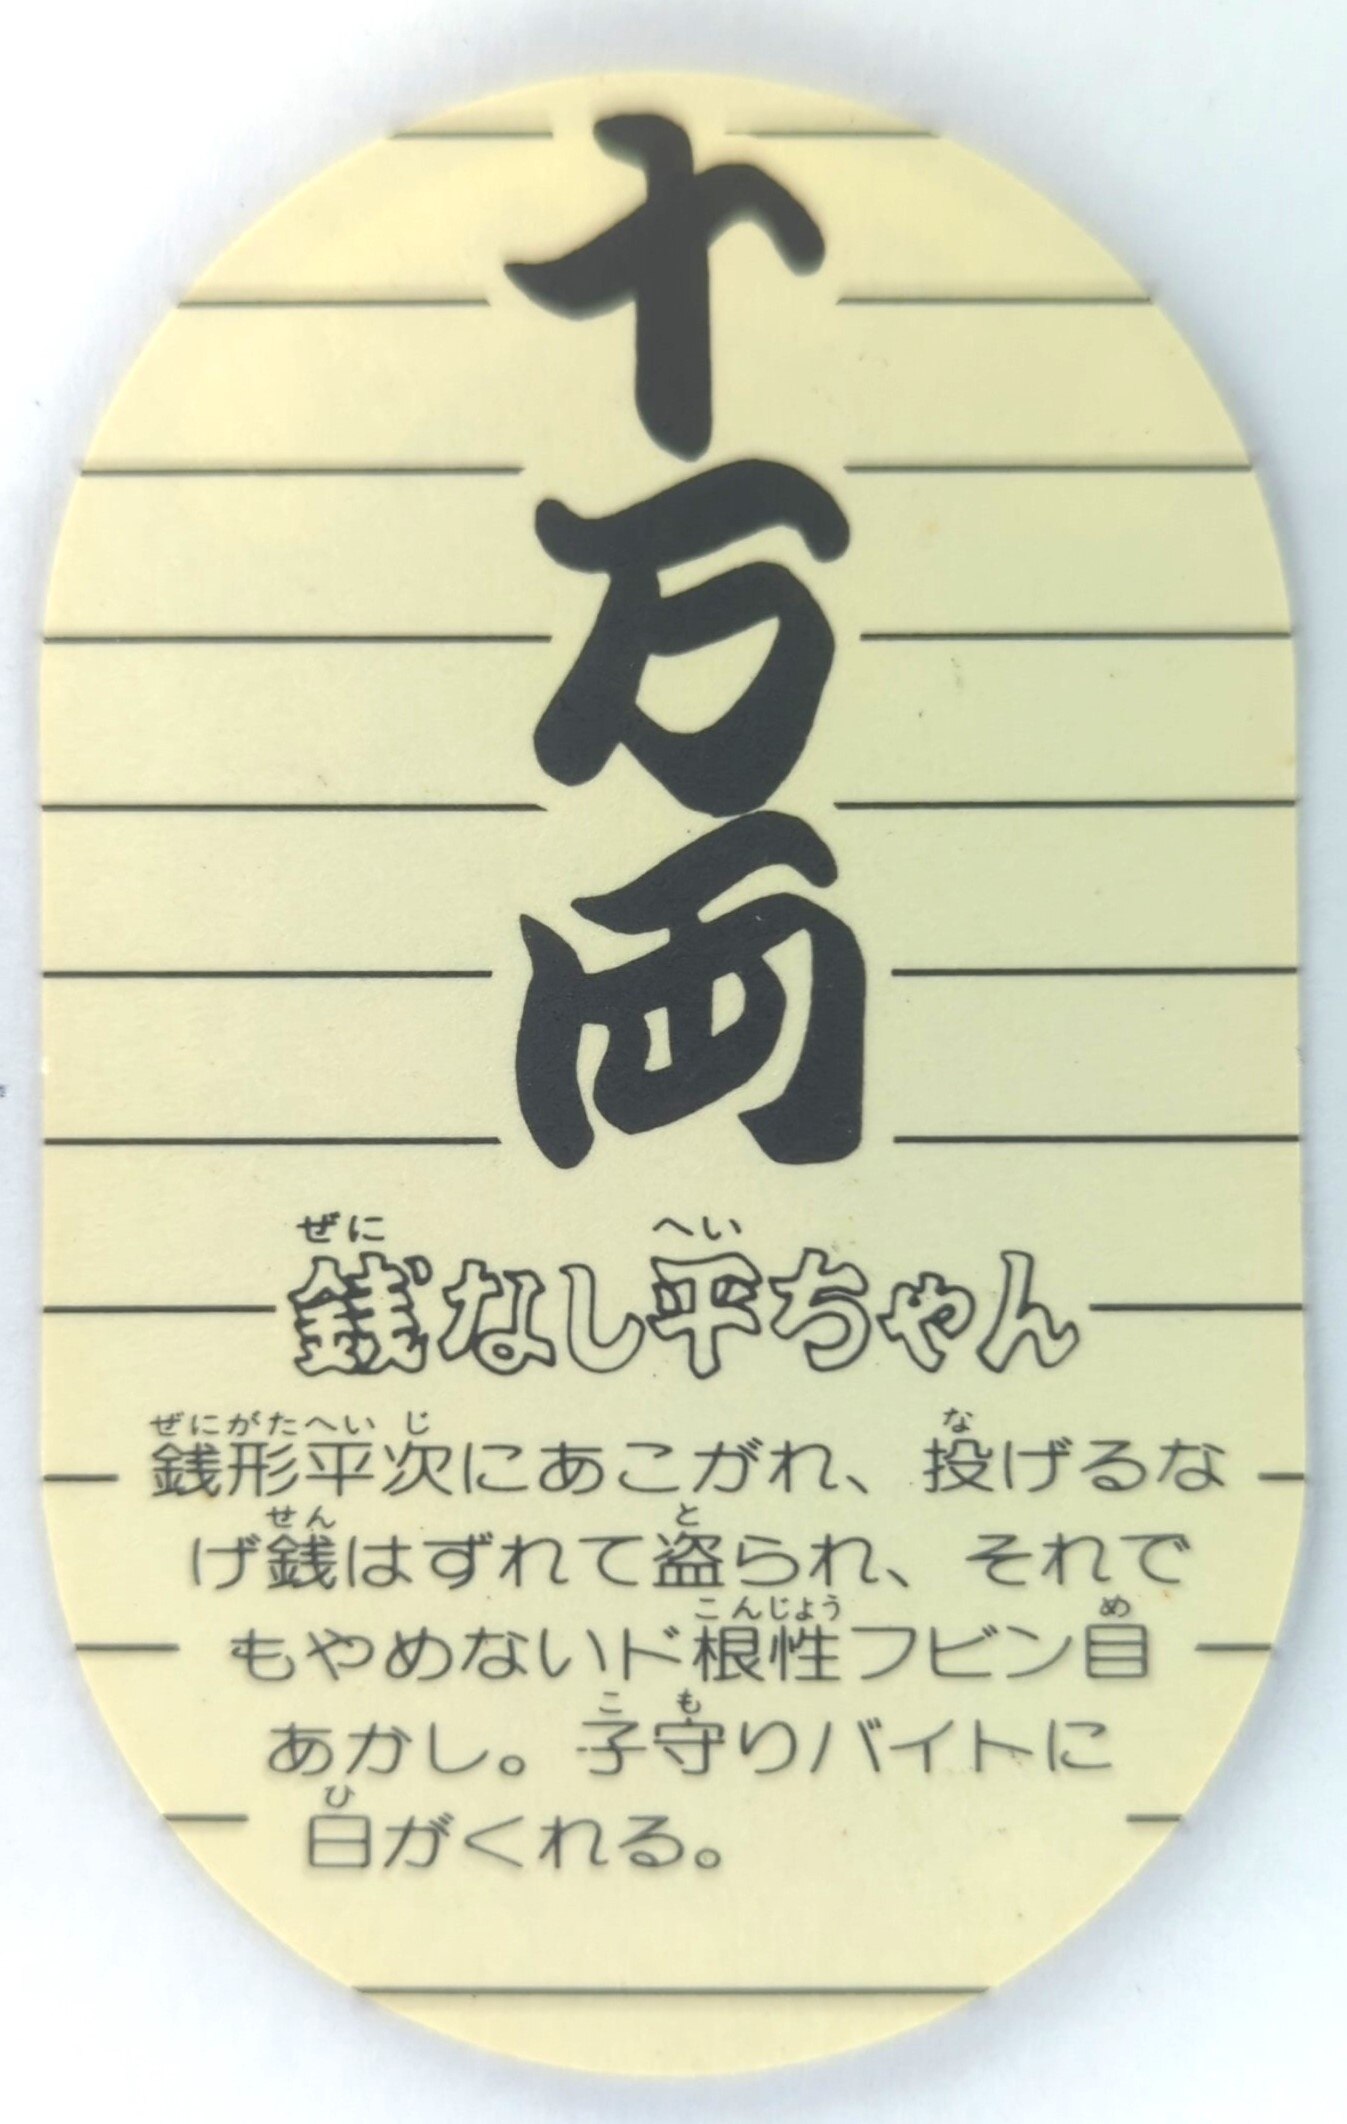 十万両
ぜに へい
銭なし平ちゃん
ぜにがたへいじ な
銭形平次にあこがれ、投げるな
せん と
げ銭はずれて盗られ、それで
こんじょう め
もやめないド根性フビン目
こ も
あかし。子守りバイトに
ひ
日がくれる。